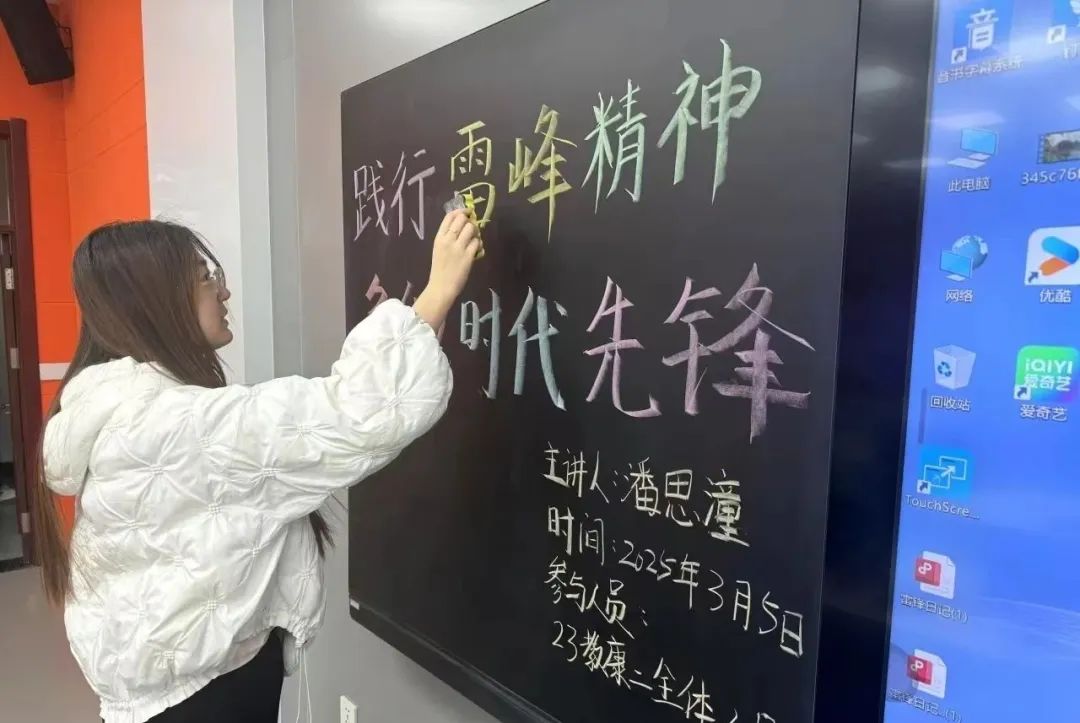 践行雷峰精神
时代先锋
主讲人:潘思潼
时间:2025年3月5日
参与人员:
23教康二全体
音书字幕系统
此电脑
345c76
网络
优酷
回收站
iQIYI
爱奇艺
爱奇艺
TouchScre...
雷锋日记(1)
雷锋日记...(1)